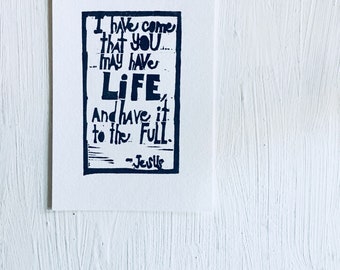 I have come
that YOU
may have
LiFE,
And have it
to the FULL.
- Jesus